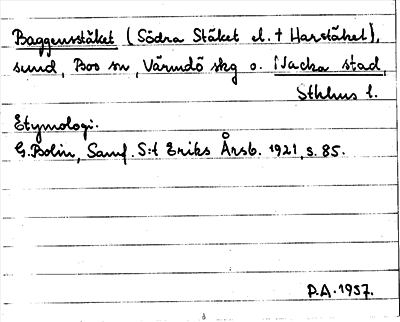 Baggensstäket (Södra Stäket el. † Harstäket),
sund, Boo sn, Värmdö skg o. Nacka stad,
Sthlms l.
Etymologi.
G. Bolin, Samf. S:t Eriks Årsb. 1921, s. 85.
P.A. 1957.